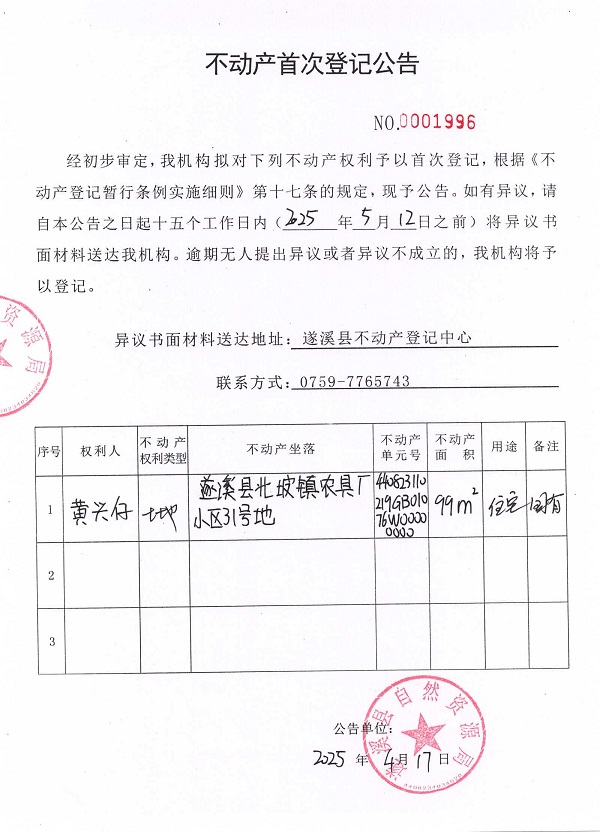 不动产首次登记公告
NO.0001996
经初步审定，我机构拟对下列不动产权利予以首次登记，根据《不
动产登记暂行条例实施细则》第十七条的规定，现予公告。如有异议，请
自本公告之日起十五个工作日内（2025年5月12日之前）将异议书
面材料送达我机构。逾期无人提出异议或者异议不成立的，我机构将予
以登记。
异议书面材料送达地址：遂溪县不动产登记中心
联系方式：0759-7765743
序号 权利人 不动产权利类型 不动产坐落 不动产单元号 不动产面积 用途 备注
1 黄兴仔 土地 遂溪县北坡镇农具厂小区31号地 440823110219GB01076W00000000 99m² 住宅 国有
2
3
公告单位：
遂溪县自然资源局
2025年4月17日
资源局